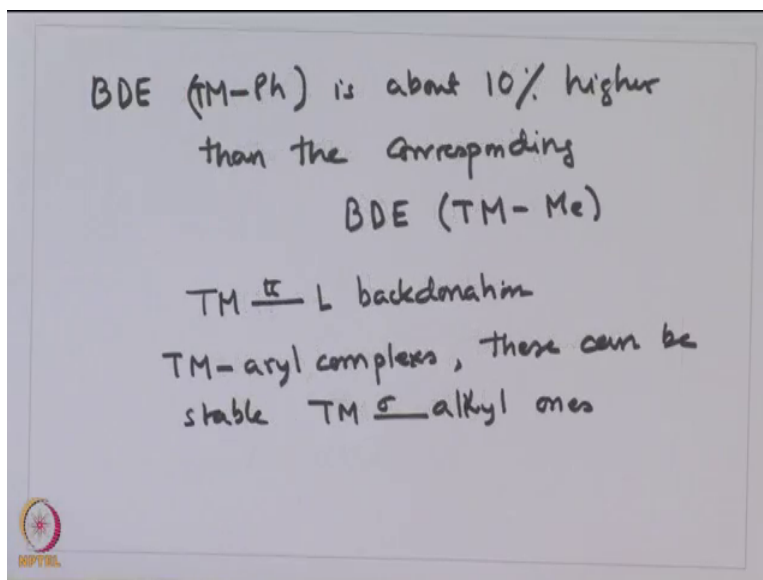 BDE (TM-Ph) is about 10% higher
than the corresponding
BDE (TM-Me)
TM π L backdonation
TM-aryl complexes, these can be
stable TM σ alkyl ones
NPTEL